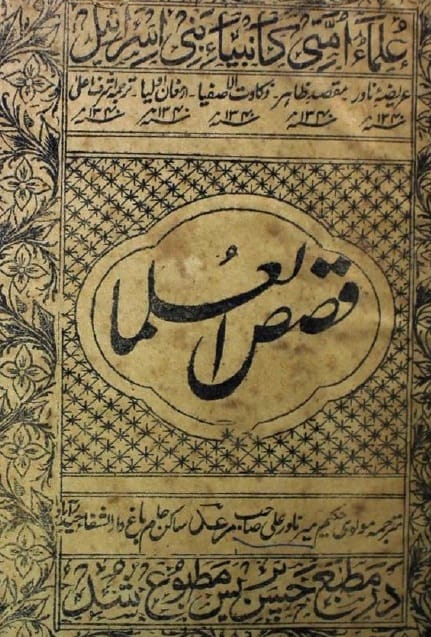 عُلماءُ اُمّتی کانبیاءِ بنی اسرائیل
عریضۂ نادر مقصدِ ظاہر ذکاوت الاصفیا ارمغان اولیا ترجمہ
۱۳۴۰ھ ۱۳۴۰ھ ۱۳۴۰ھ ۱۳۴۰ھ ۱۳۴۰ھ
قصص العلما
مترجمہ مولوی حکیم میر نادر علی صاحب رعد ساکن جام باغ دارالشفا حیدرآباد
در مطبع پریس مطبوع شد